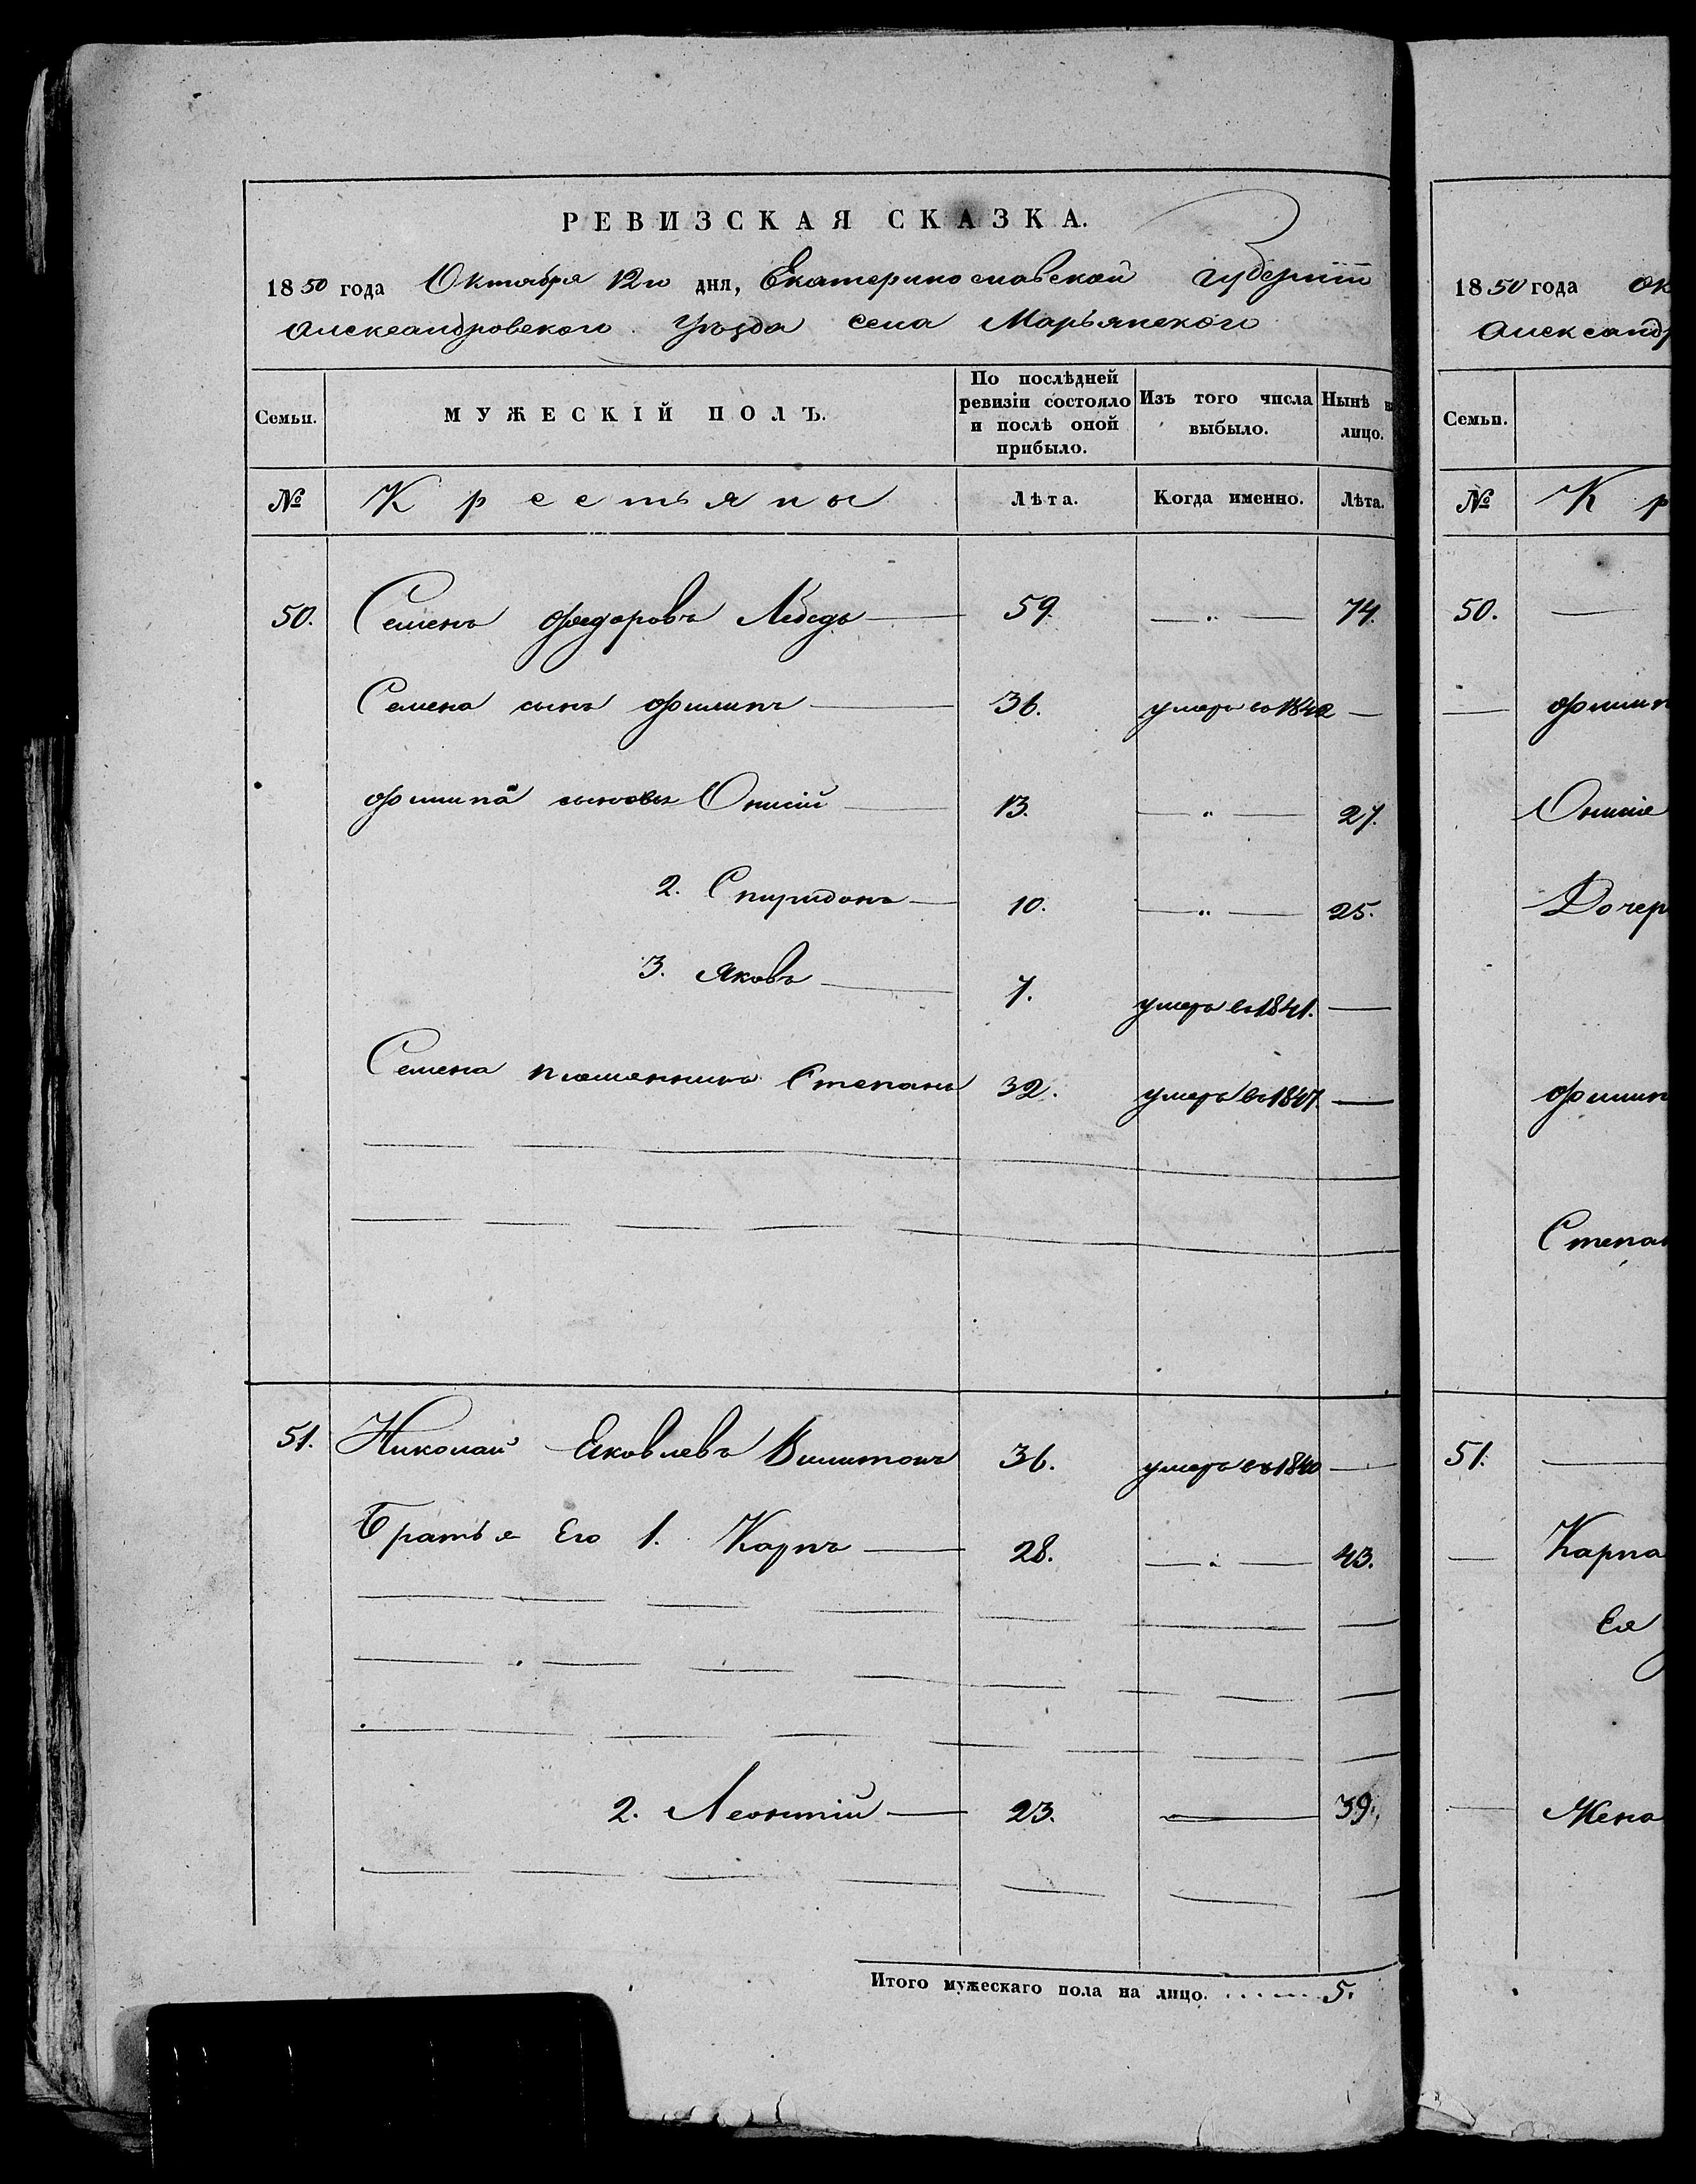 РЕВИЗСКАЯ СКАЗКА.
1850 года Октября 12го дня, Екатеринославской Губерніи
Александровского Уѣзда села Марьянского
Семьи. МУЖЕСКІЙ ПОЛЪ. По послѣдней ревизіи состояло и послѣ оной прибыло. Изъ того числа выбыло. Нынѣ на лицо.
№ Крестьяны Лѣта. Когда именно. Лѣта.
50. Семенъ Федоровъ Лебедь 59. 74.
Семена сынъ Филипъ 36. умеръ въ 1842
Филипа сыновья Онисій 13. 27.
2. Спиридонъ 10. 25.
3. Яковъ 7. умеръ въ 1841.
Семена племянникъ Степанъ 32. умеръ въ 1847.
51. Николай Яковлевъ 36. умеръ въ 1840
Братья Его 1. Карпъ 28. 43.
2. Леонтій 23. 39.
Итого мужескаго пола на лицо. 5.
1850 года Ок
Александр
Семьи.
№ К р
50.
Филип
Онисія
Дочер
Филип
Степан
51.
Карпа
Ея
Жена